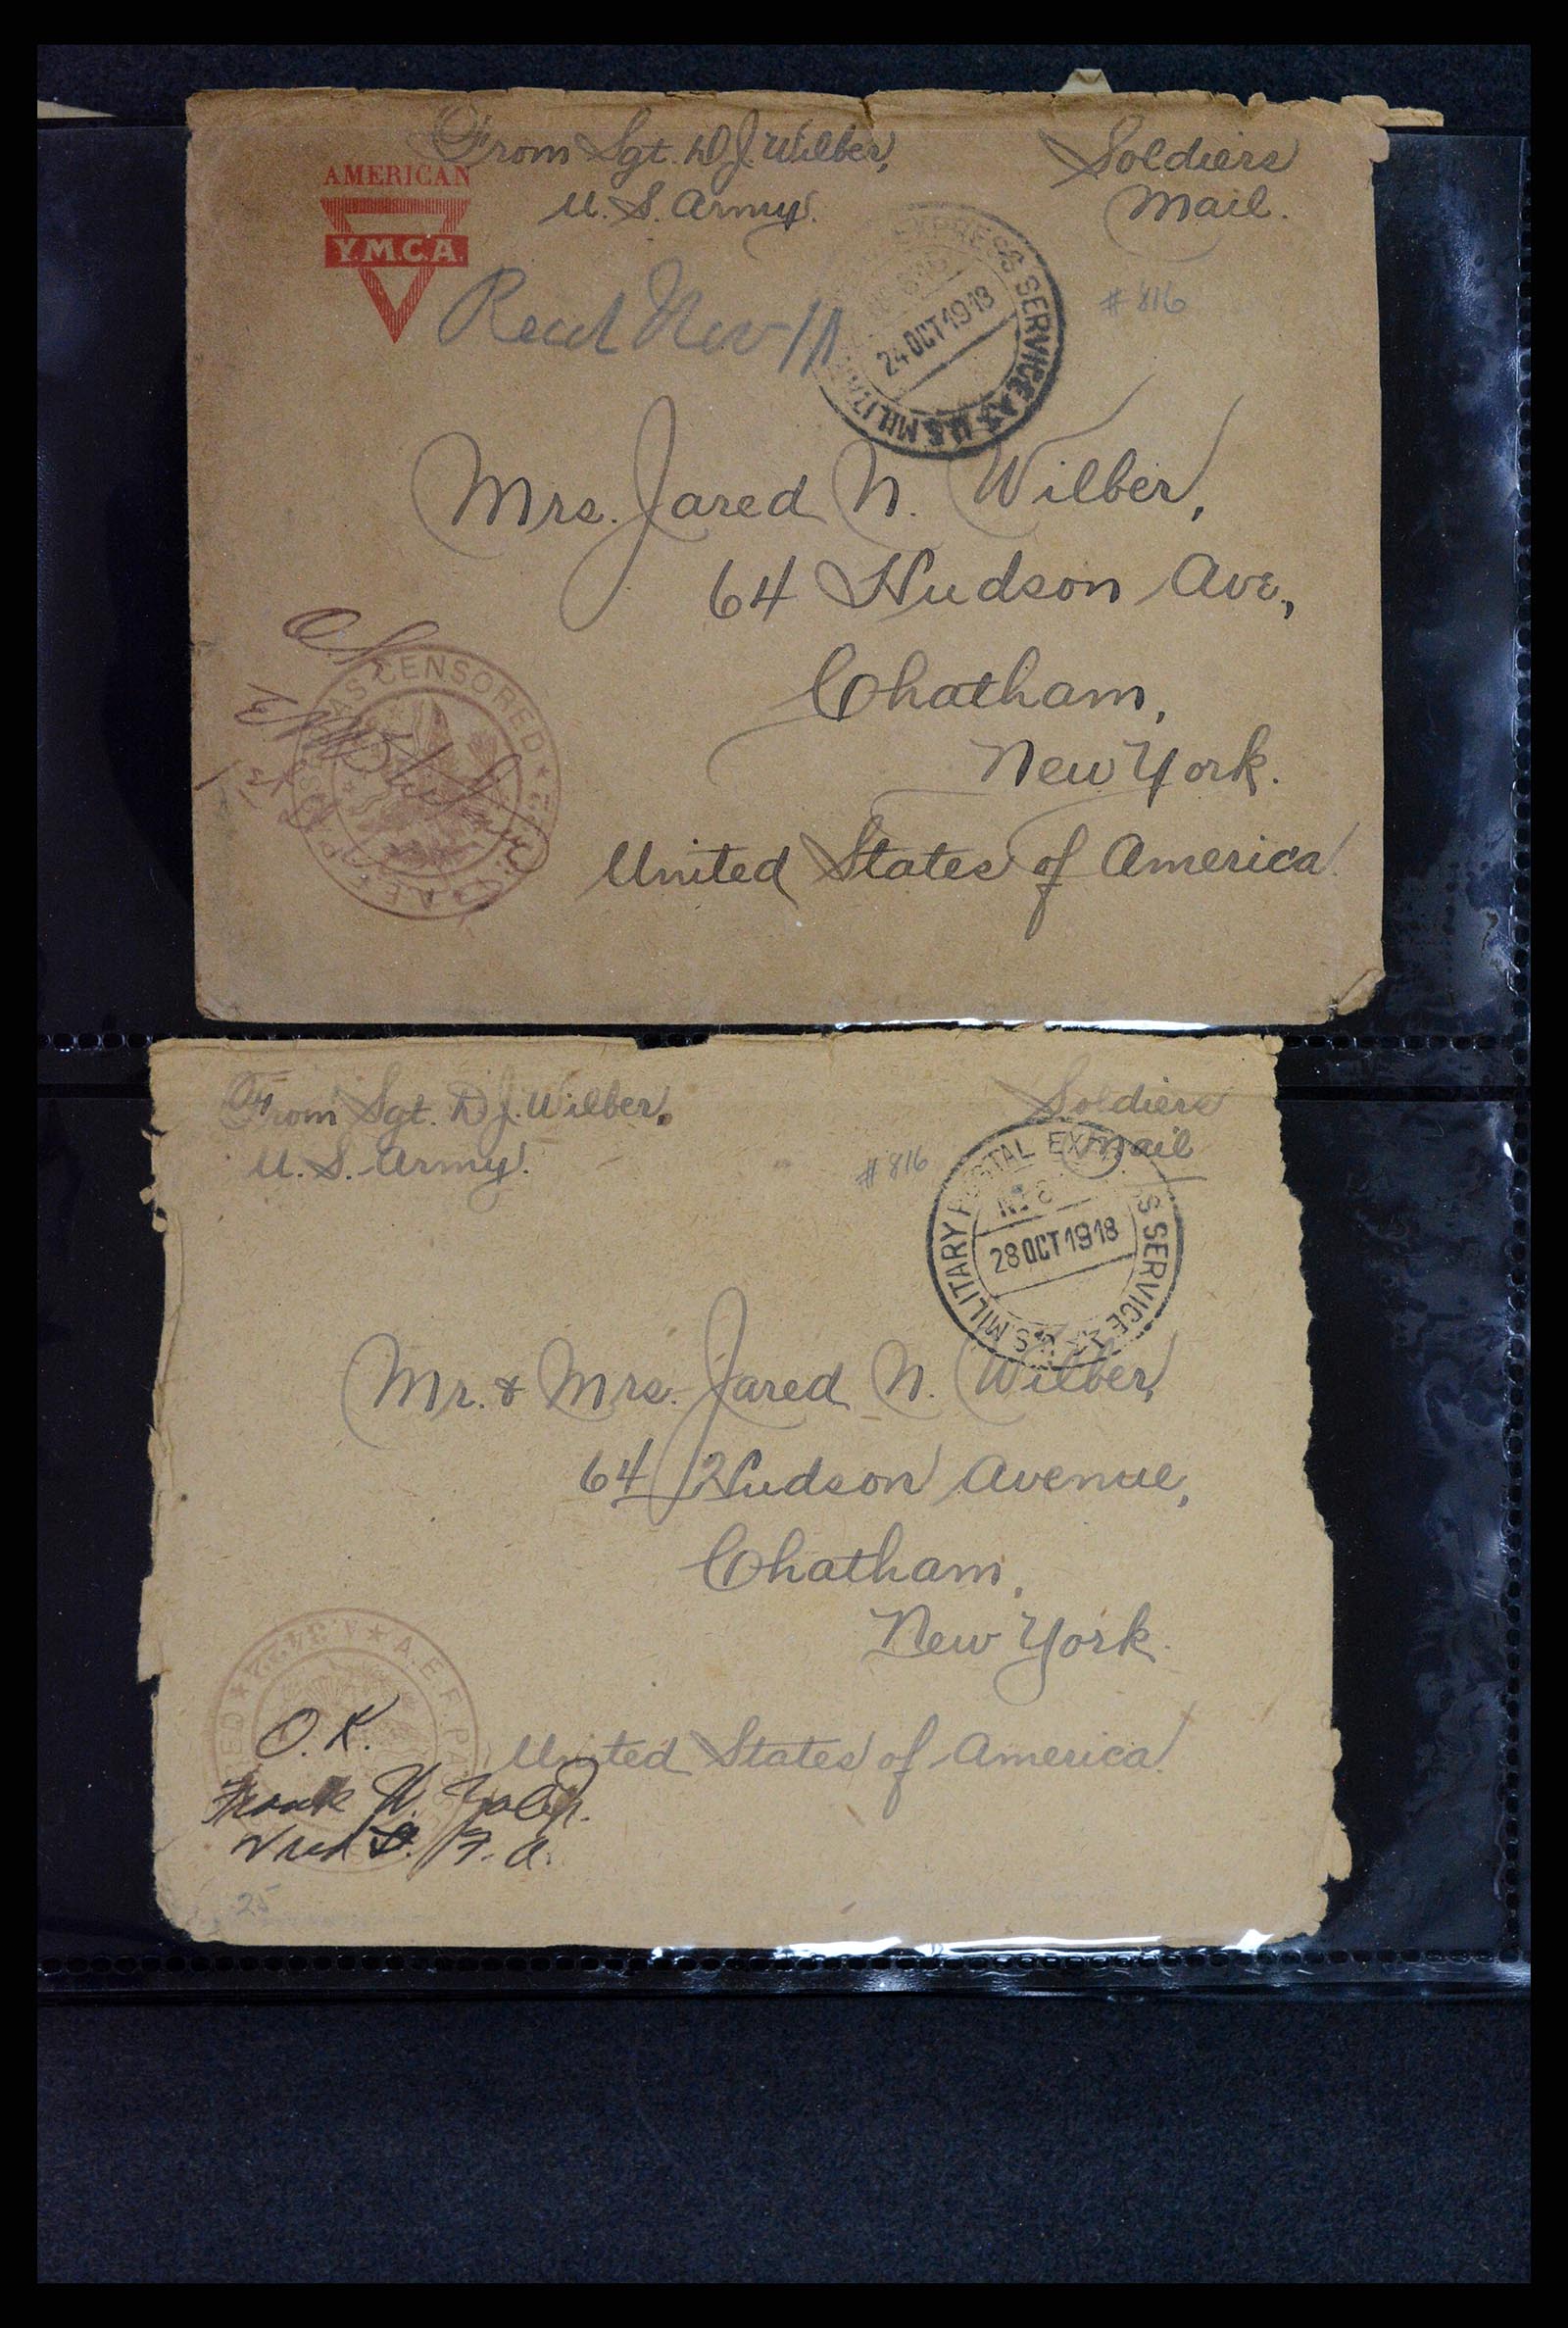 From Sgt. D. J. Wilber,
U. S. Army.
Soldiers
Mail.
AMERICAN
Y.M.C.A.
Recd Nov 11
EXPRESS SERVICE U.S MILITA
24 OCT 1918
# 816
Mrs. Jared N. Wilber,
64 Hudson Ave,
Chatham,
New York.
United States of America.
AS CENSORED
A.E.F. PASS
From Sgt. D. J. Wilber,
U. S. Army.
Soldiers
Mail
# 816
U.S. MILITARY POSTAL EX S SERVICE
28 OCT 1918
Mr. & Mrs. Jared N. Wilber,
64 Hudson Avenue,
Chatham,
New York.
United States of America.
ED ★ A.3422 ★ A.E.F. PAS
O.K.
Frank W.
F. A.
25